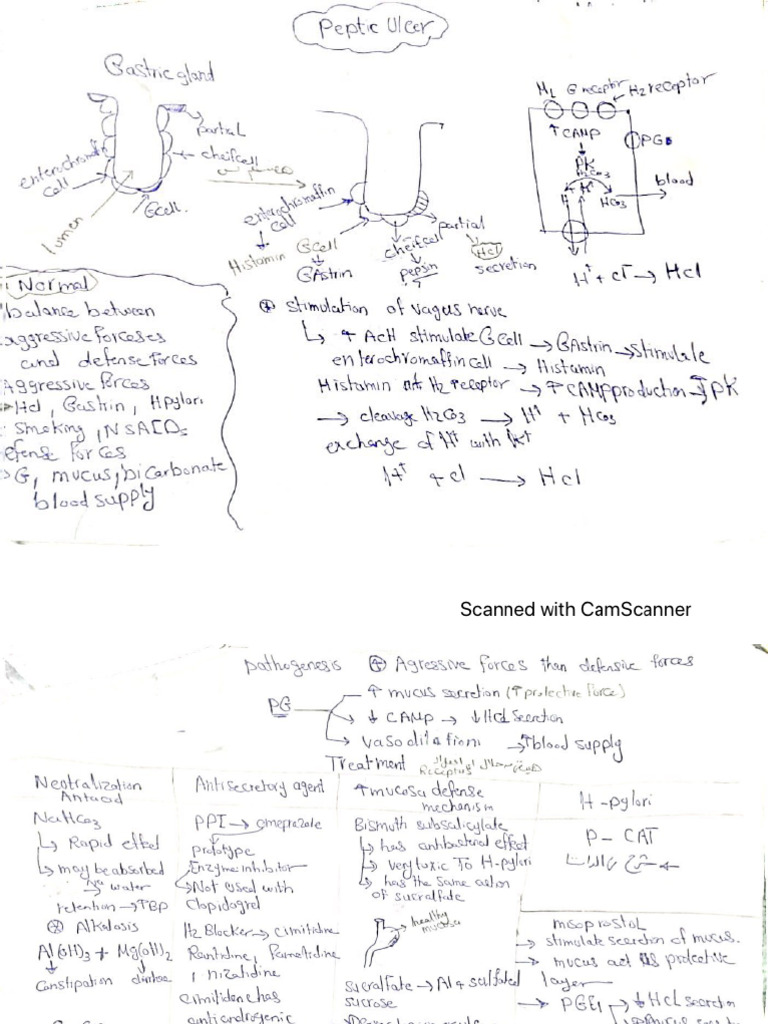 Peptic Ulcer
Gastric gland
partial
cheifcell
enterochromaffin
cell
Gcell.
lumen
enterochromaffin
cell
Histamin
Gcell
GAstrin
cheifcell
pepsin
partial
Hcl
secretion
M1 G receptor H2 receptor
↑ CAMP
PG
PK
H2CO3
H+
HCO3
blood
H+ + cl- → Hcl
Normal
balance between
aggressive forceses
and defense forces
Aggressive forces
Hcl, Gastrin, H pylori
Smoking, NSAIDs
efense forces
→ G, mucus, bicarbonate
blood supply
* stimulation of vagus nerve
↳ ↑ AcH stimulate G cell → GAstrin → stimulate
enterochromaffin cell → Histamin
Histamin H2 receptor → ↑ CAMP production → ↑ PK
→ cleavage H2CO3 → H+ + HCO3
exchange of H+ with K+
H+ + cl → Hcl
Scanned with CamScanner
pathogenesis ⊕ Agressive forces than defensive forces
PG
↑ mucus secretion (↑ protective force)
↓ CAMP → ↓ Hcl secretion
→ vasodilation → ↑ blood supply
Treatment
Neotralization
Antacid
NaHCO3
↳ Rapid effect
↳ may be absorbed
Na → water
retention → ↑ BP
⊗ Alkalosis
Al(OH)3 + Mg(OH)2
Constipation diarhea
Antisecretory agent
PPI → omeprazole
prototype
Enzyme inhibitor
→ Not used with
Clopidogrel
H2 Blocker → cimitidine
Ranitidine, Famatidine
, nizatidine
cimitidine has
antiandrogenic
↑ mucosa defense
mechanism
Bismuth subsalicylate
↳ has antibacterial effect
↳ very toxic To H-pylori
↳ has the same action
of sucralfate
healthy
mucosa
sucralfate → Al + sulfated
sucrose
H-pylori
P-CAT
misoprostol
→ stimulate secretion of mucus.
→ mucus act as protective
layer
→ PGE1 → ↓ Hcl secretin